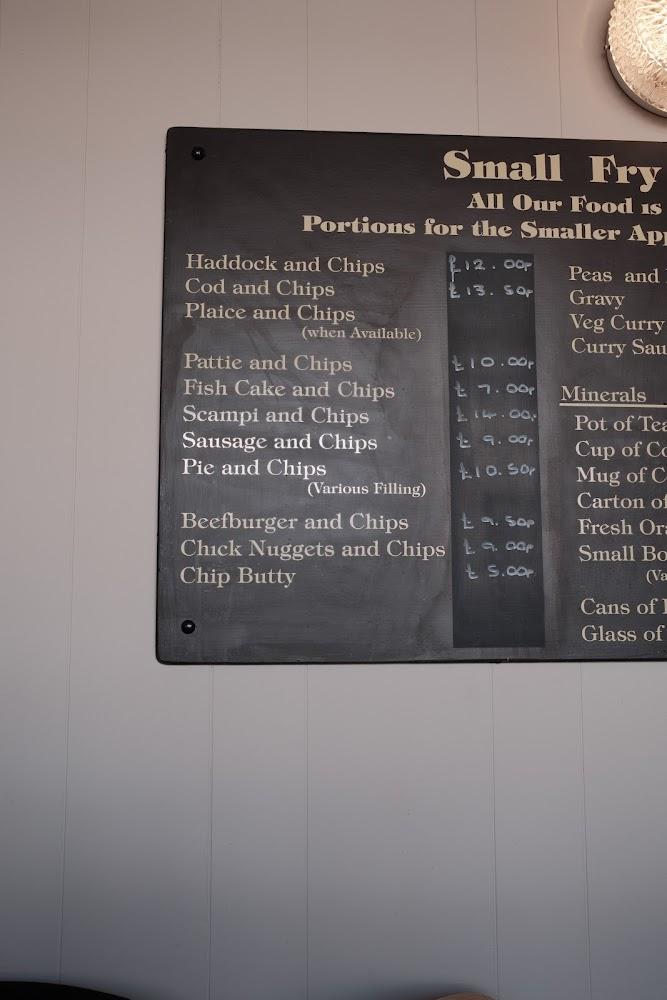 Small Fry
All Our Food is
Portions for the Smaller App
Haddock and Chips £12.00p
Cod and Chips £13.50p
Plaice and Chips
(when Available)
Pattie and Chips £10.00p
Fish Cake and Chips £7.00p
Scampi and Chips £14.00p
Sausage and Chips £9.00p
Pie and Chips £10.50p
(Various Filling)
Beefburger and Chips £9.50p
Chick Nuggets and Chips £9.00p
Chip Butty £5.00p
Peas and
Gravy
Veg Curry
Curry Sau
Minerals
Pot of Tea
Cup of Co
Mug of C
Carton of
Fresh Ora
Small Bo
(Va
Cans of
Glass of